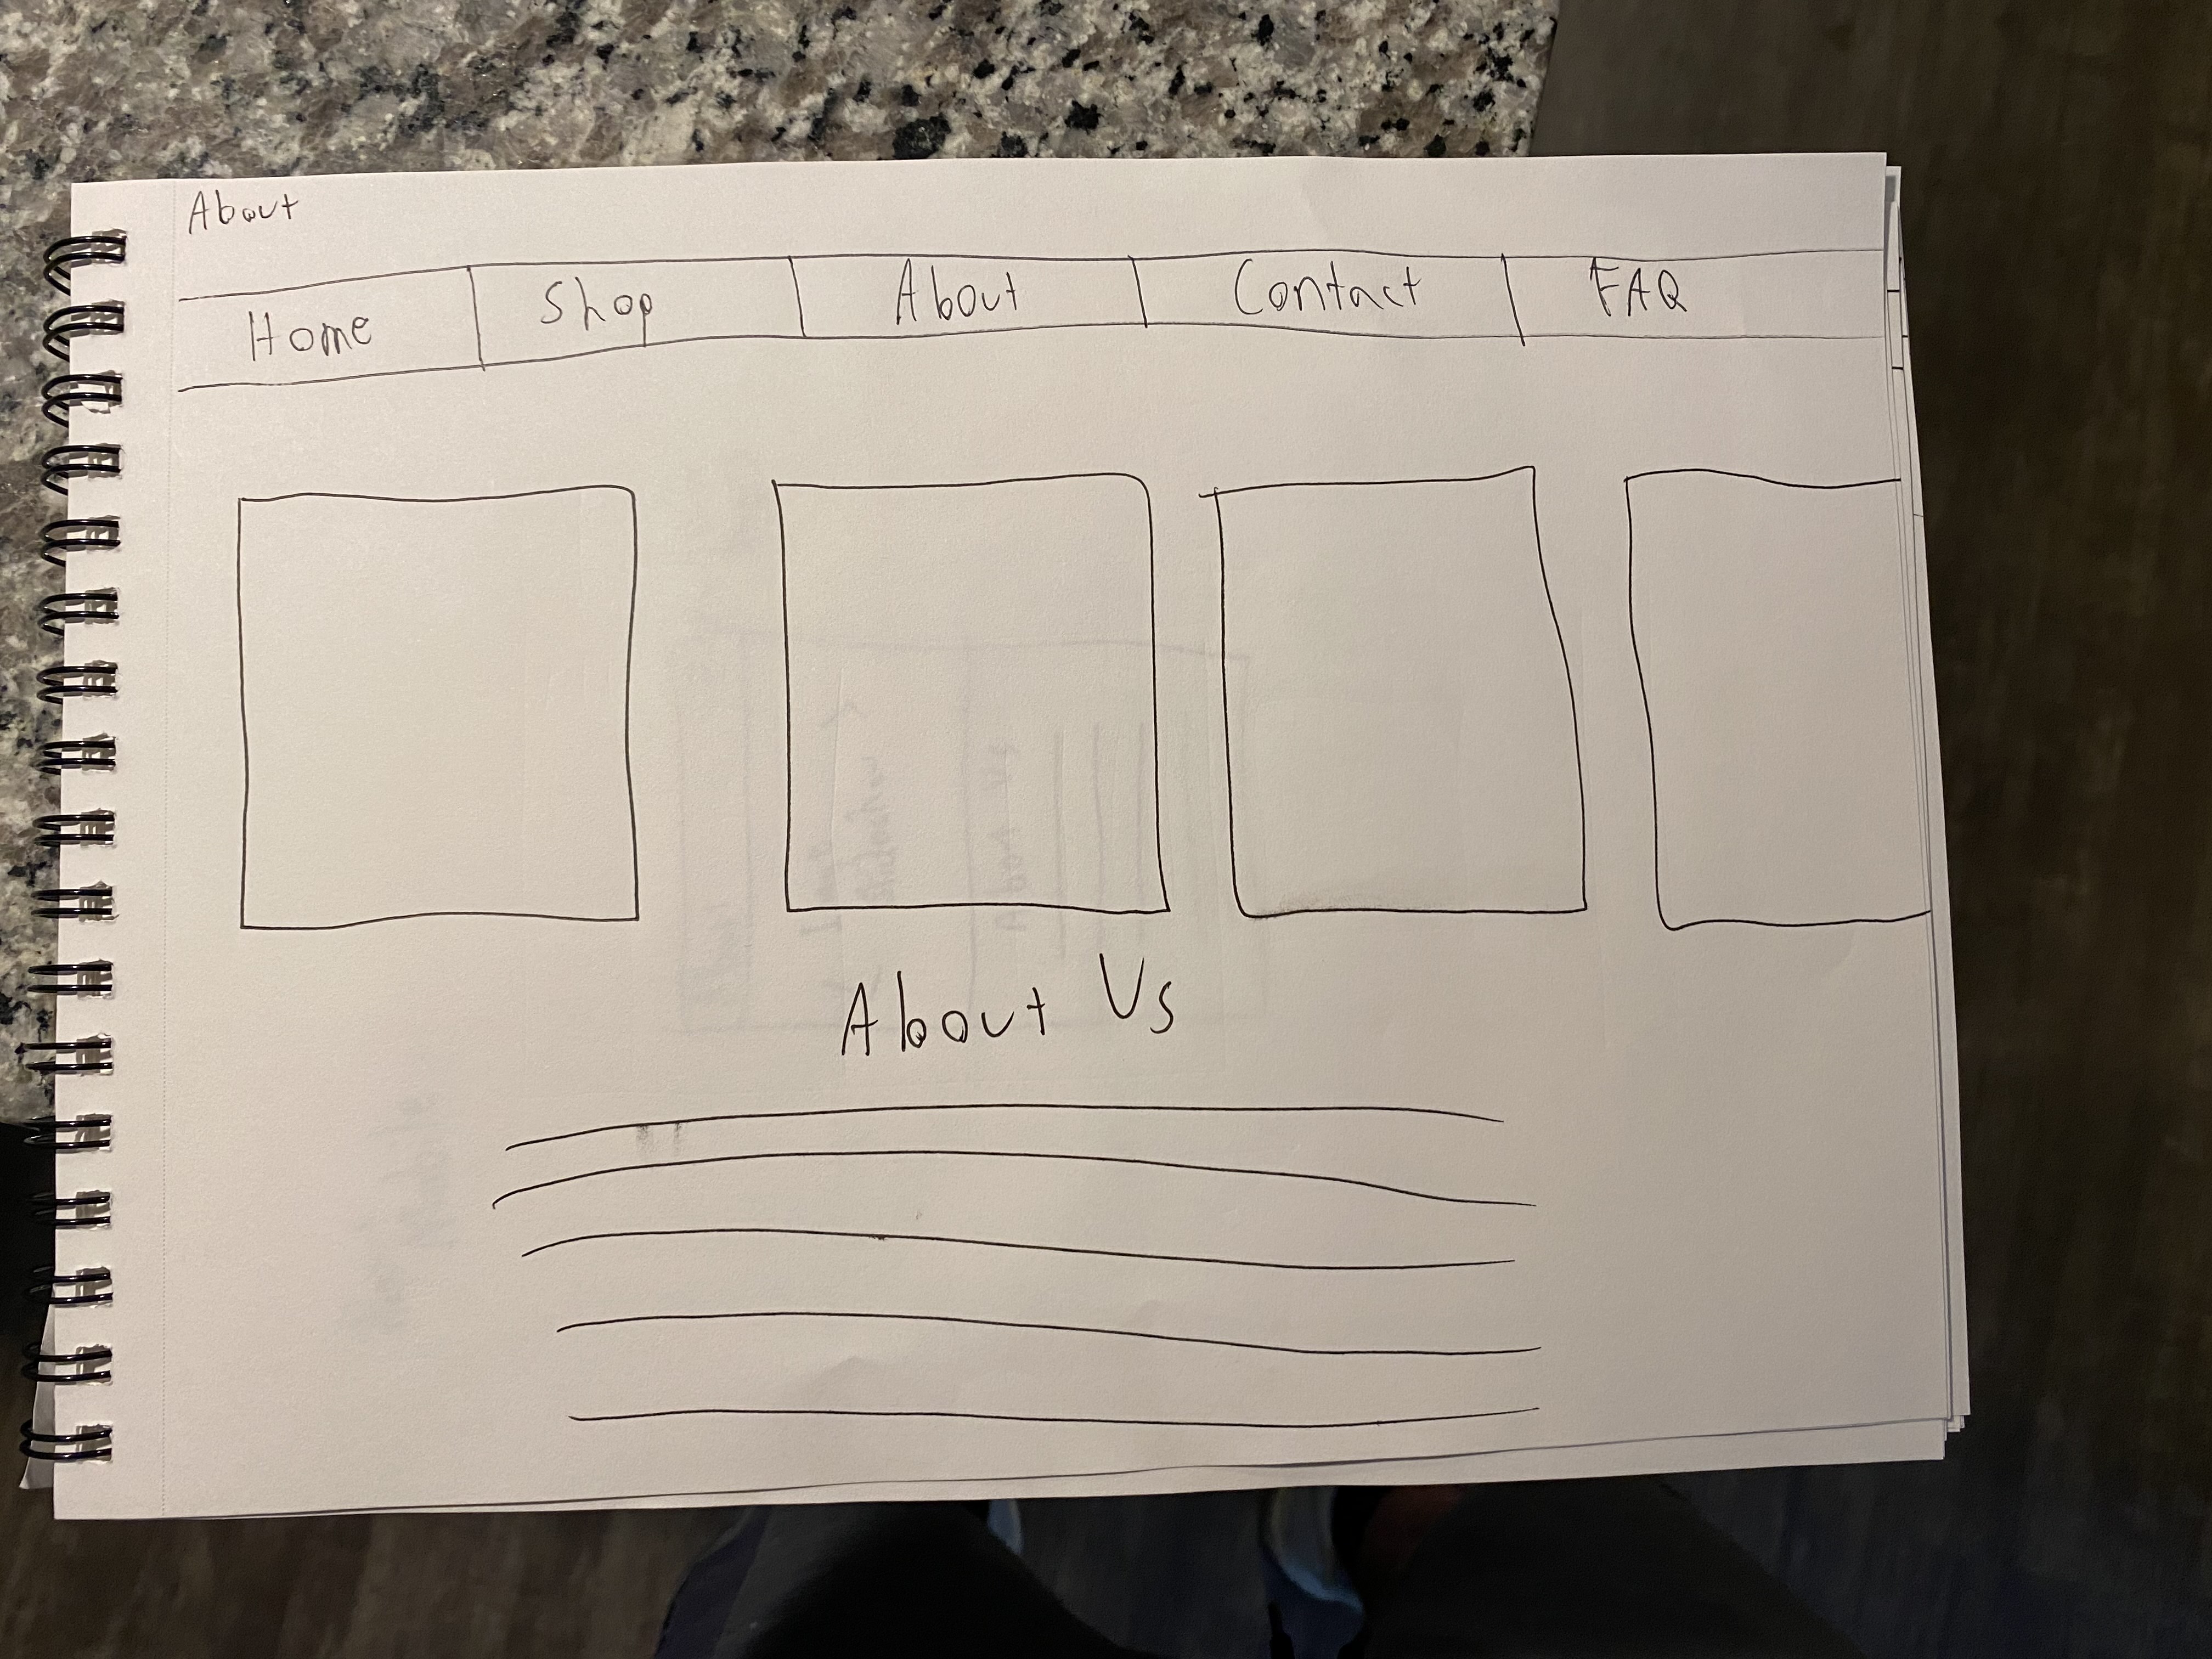 About
Home Shop About Contact FAQ
About Us